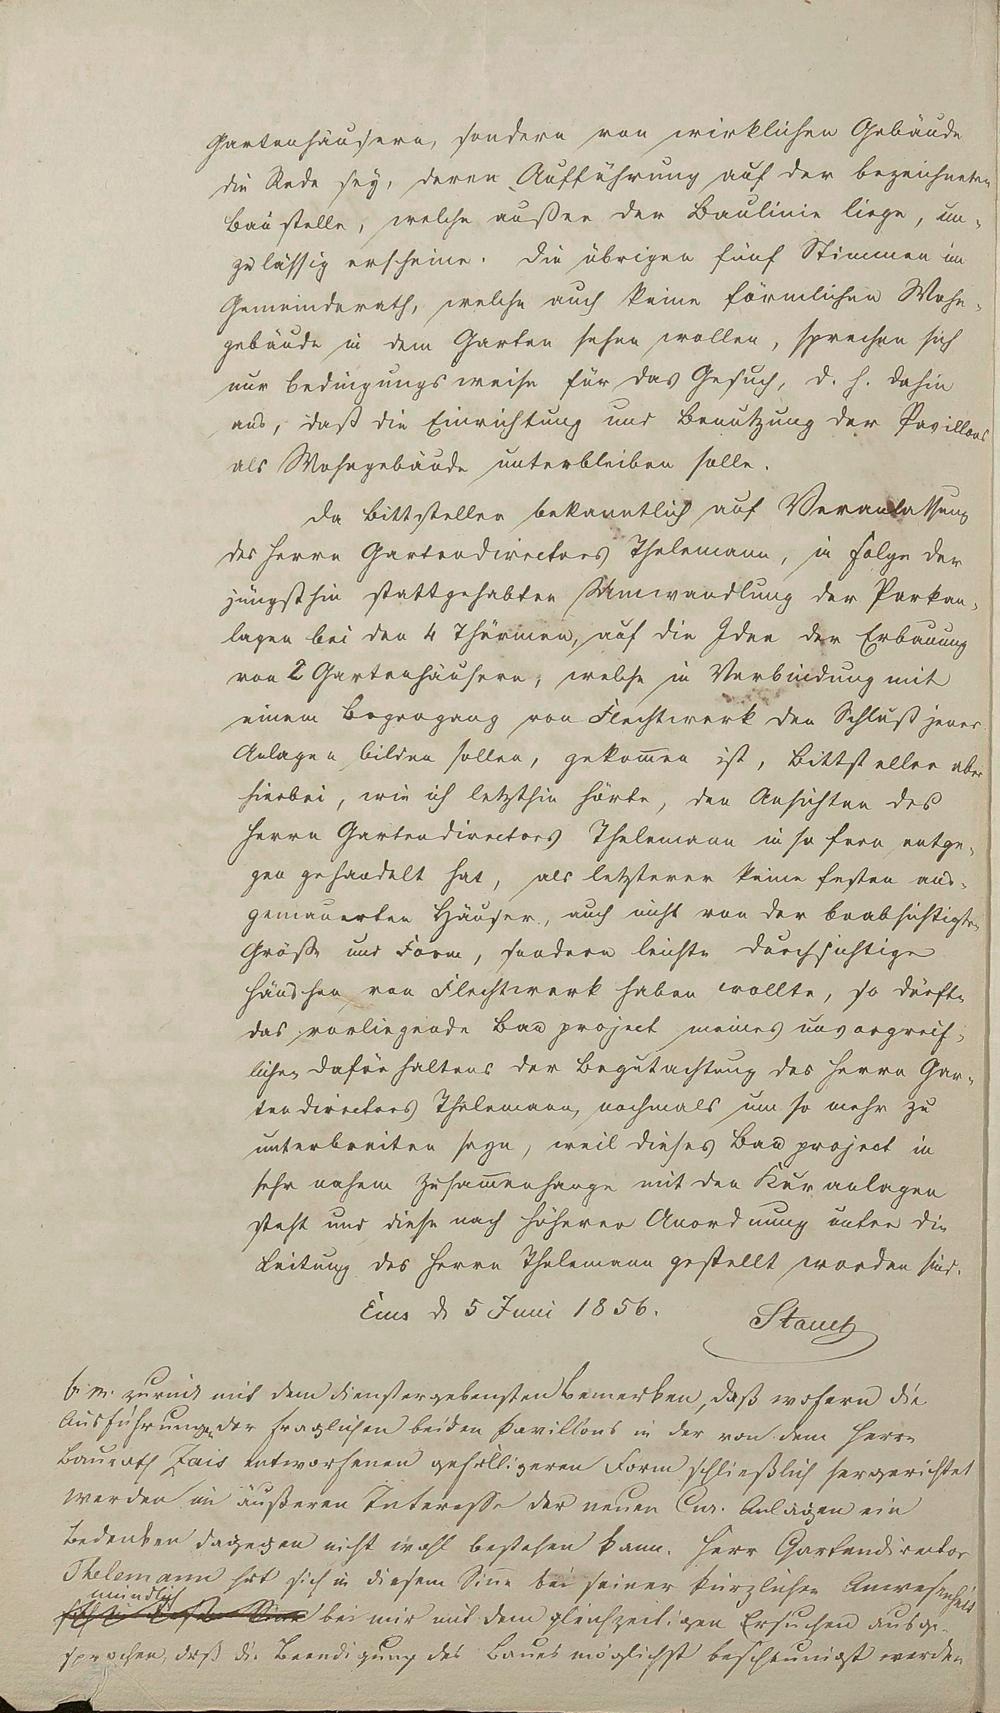 Gartenhäusern, sondern von wirklichen Gebäude
die Rede sey, deren Aufführung auf der bezeichneten
Baustelle, welche außer der Baulinie liege, un-
zulässig erscheine. Die übrigen fünf Stimmen im
Gemeinderath, welche auch keine förmlichen Wohn-
gebäude in dem Garten sehen wollen, sprechen sich
nur bedingungsweise für das Gesuch, d. h. dahin
aus, daß die Einrichtung und Benutzung der Pavillons
als Wohngebäude unterbleiben solle.
Da Bittsteller bekanntlich auf Veranlassung
des Herrn Gartendirectors Thelemann, in Folge der
jüngsthin stattgehabten Umwandlung der Parkan-
lagen bei den 4 Thürmen, auf die Idee der Erbauung
von 2 Gartenhäusern, welche in Verbindung mit
einem Bogengang von Flechtwerk den Schluß jener
Anlagen bilden sollen, gekom̄en ist, Bittsteller aber
hierbei, wie ich letzthin hörte, den Ansichten des
Herrn Gartendirectors Thelemann in so fern entge-
gen gehandelt hat, als letzterer keine festen aus-
gemauerten Häuser, auch nicht von der beabsichtigten
Größe und Form, sondern leichte durchsichtige
Häuschen von Flechtwerk haben wollte, so dürfte
das vorliegende Bauproject meines unvorgreif-
lichen Dafürhaltens der Begutachtung des Herrn Gar-
tendirectors Thelemann, nochmals um so mehr zu
unterbreiten seyn, weil dieses Bauproject in
sehr nahem Zusam̄enhange mit den Kuranlagen
steht und diese nach höherer Anordnung unter die
Leitung des Herrn Thelemann gestellt worden sind.
Ems d 5 Juni 1856.
Stauch
b. m. zurück mit dem dienstergebensten Bemerken, daß wofern die
Ausführungen der fraglichen beiden Pavillons in der von dem Herrn
Baurath Zais entworfenen gefälligeren Form schließlich hergerichtet
werden im äußeren Interesse der neuen Cur. Anlagen ein
Bedenken dagegen nicht wohl bestehen kann. Herr Gartendirector
Thelemann hat sich in diesem Sin̄e bei seiner kürzlichen Anwesenheit
mündlich
bei mir mit dem gleichzeitigen Ersuchen ausge-
sprochen, daß die Beendigung des Baues möglichst beschleunigt werden